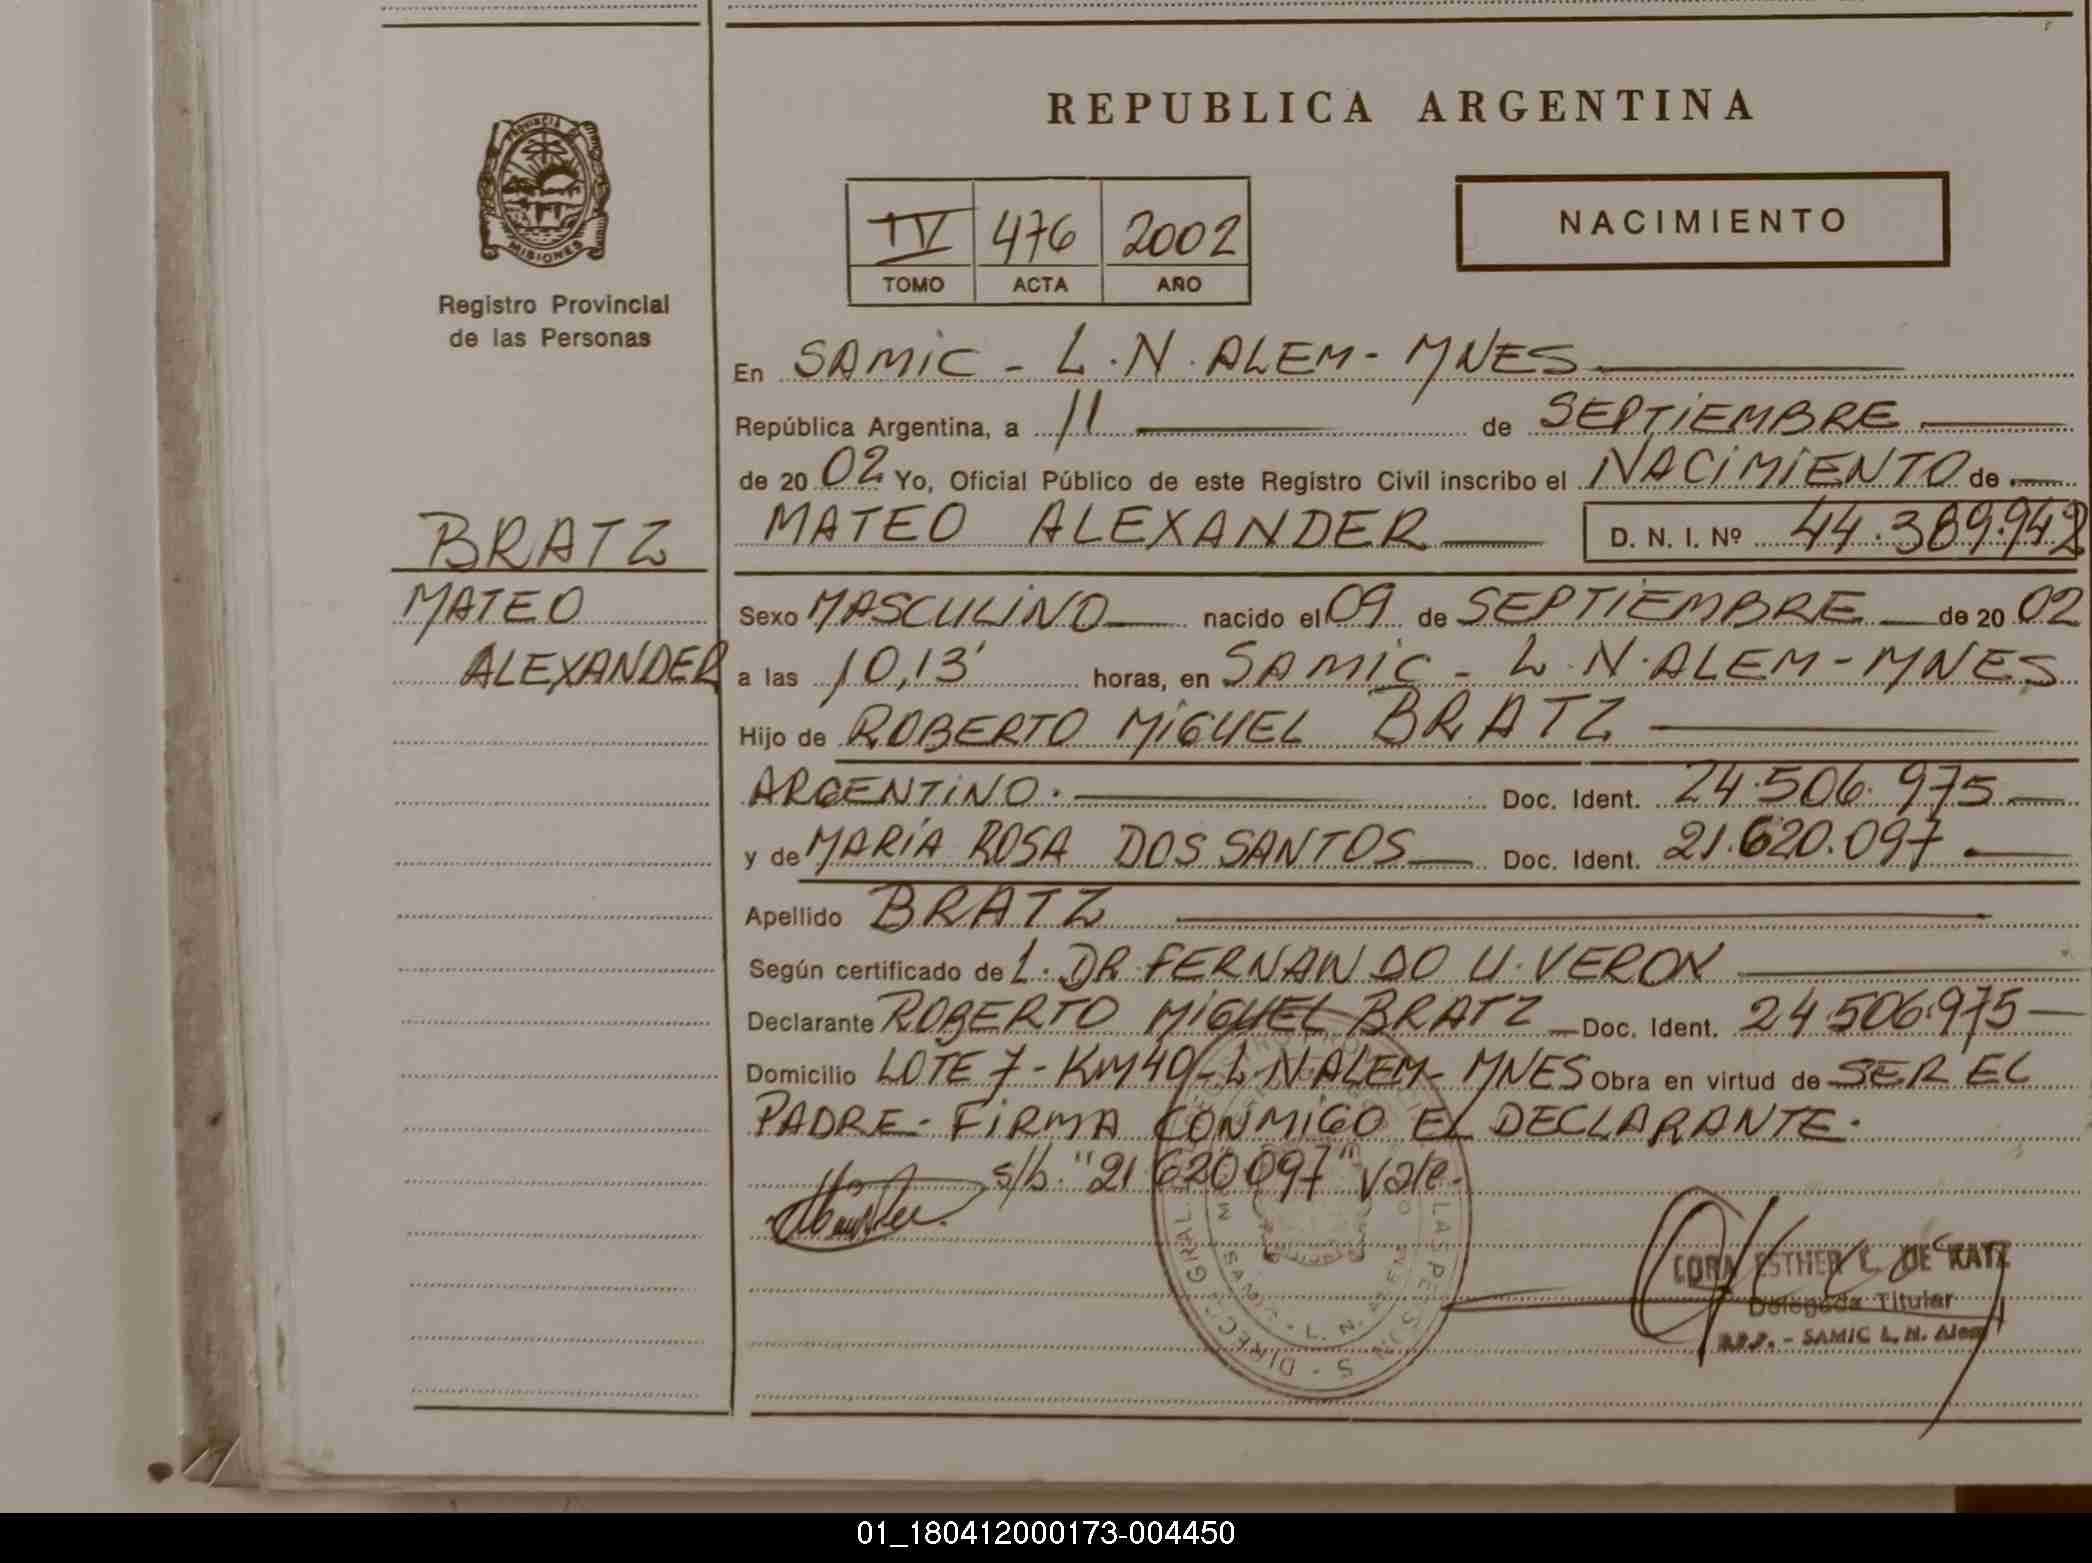 REPUBLICA ARGENTINA
PROVINCIA DE
MISIONES
Registro Provincial
de las Personas
IV 476 2002
TOMO ACTA AÑO
NACIMIENTO
En SAMIC - L.N. ALEM - MNES
República Argentina, a 11 de SEPTIEMBRE
de 2002 Yo, Oficial Público de este Registro Civil inscribo el NACIMIENTO de
BRATZ
MATEO
ALEXANDER
MATEO ALEXANDER D. N. I. Nº 44.389.942
Sexo MASCULINO nacido el 09 de SEPTIEMBRE de 2002
a las 10,13' horas, en SAMIC - L.N. ALEM - MNES
Hijo de ROBERTO MIGUEL BRATZ
ARGENTINO. Doc. Ident. 24.506.975
y de MARÍA ROSA DOS SANTOS Doc. Ident. 21.620.097
Apellido BRATZ
Según certificado de L. DR FERNANDO U. VERON
Declarante ROBERTO MIGUEL BRATZ Doc. Ident. 24.506.975
Domicilio LOTE 7 - KM 40 - L.N. ALEM - MNES Obra en virtud de SER EL
PADRE - FIRMA CONMIGO EL DECLARANTE.
s/b. "21.620.097" vale.
CORA ESTHER L. DE RATZ
Delegada Titular
R.P.P. - SAMIC L. N. Alem
01_180412000173-004450